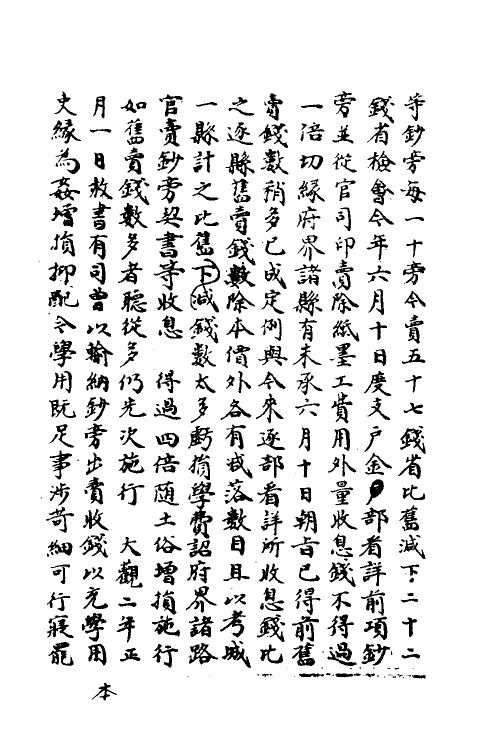 等鈔旁每一十旁今賣五十七錢省比舊減下二十二
錢省檢會今年六月十日度支戶金部看詳前項鈔
旁並從官司印賣除紙墨工費用外量收息錢不得過
一倍切緣府界諸縣有未承六月十日朝旨已得前舊
賣錢數稍多已成定例與今來逐部看詳所收息錢比
之逐縣舊賣錢數除本價外各有減落數目且以考城
一縣計之比舊下減錢數太多虧損學費詔府界諸路
官賣鈔旁契書等收息 得過四倍随土俗增損施行
如舊賣錢數多者聽從多仍先次施行 大觀二年正
月一日赦書有司曹以輸納鈔旁出賣收錢以充學用
吏緣為姦增損抑配今學用既足事涉苛細可行寢罷
本